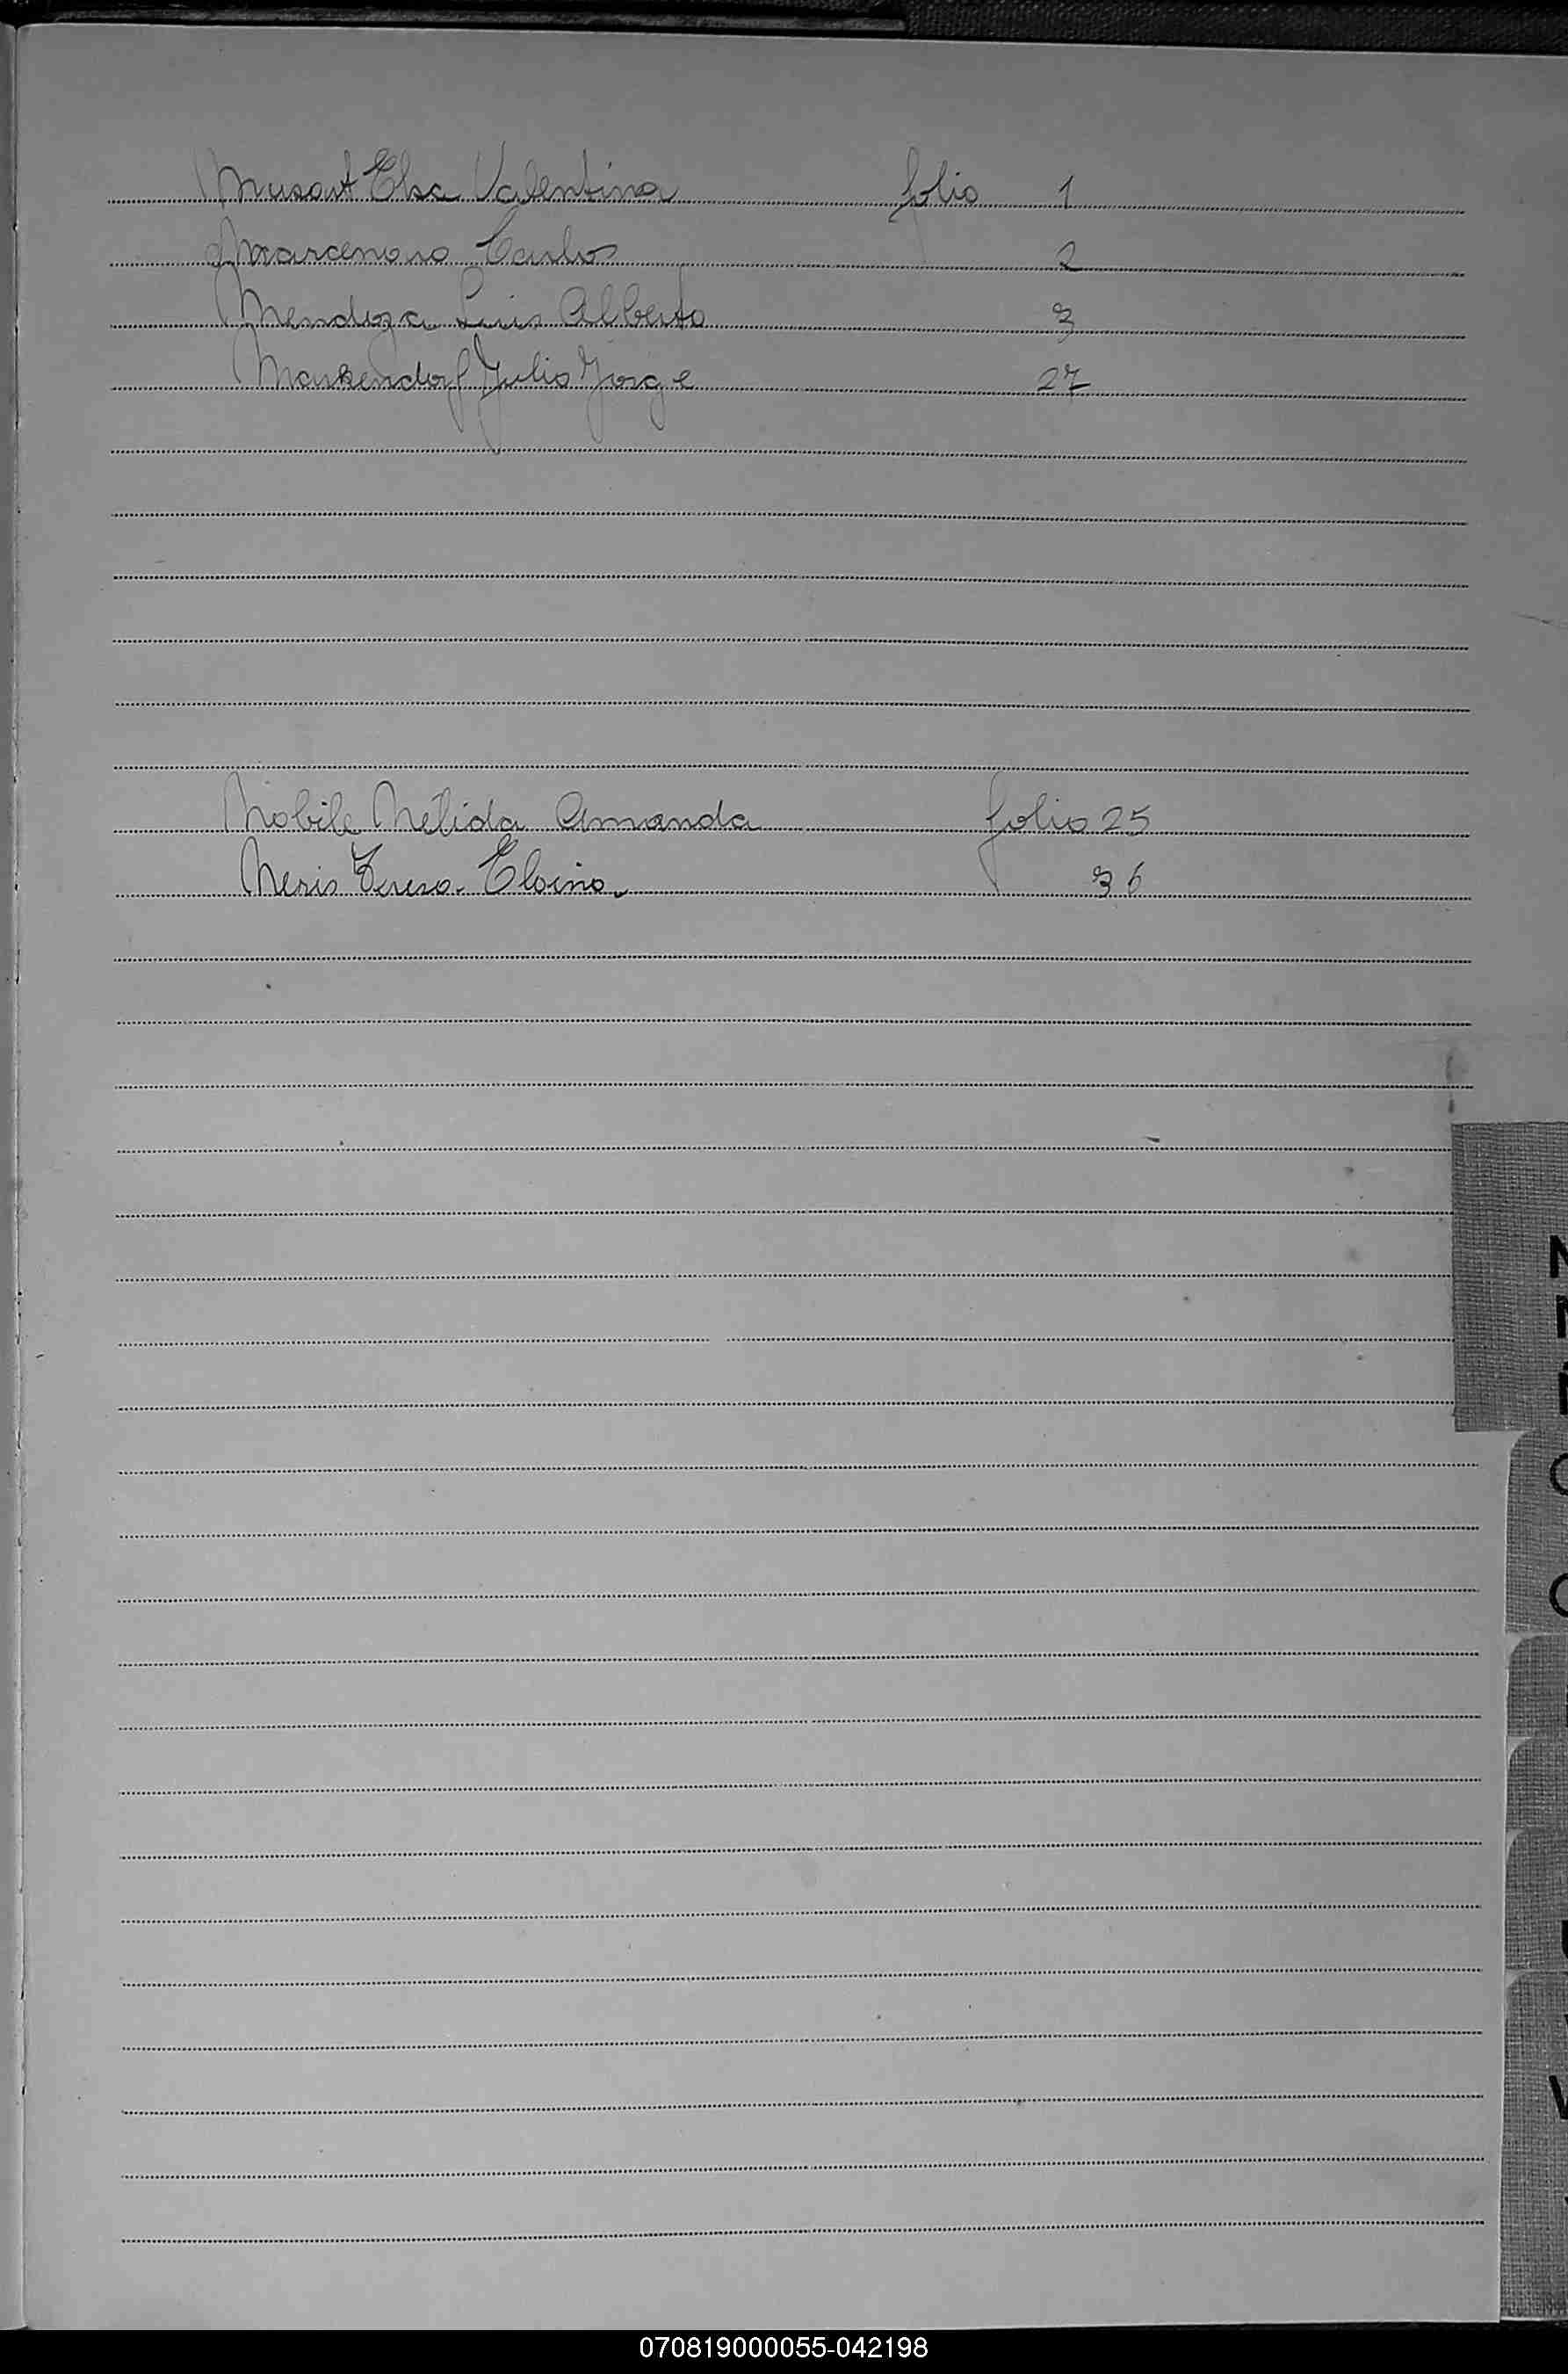 Musant Elsa Valentina folio 1
Marcenaro Carlos 2
Mendoza Luis Alberto 3
Markendorf Julio Jorge 27
Nobile Nélida Amanda folio 25
Neris Teresa Eloina 36
N
N
O
V
070819000055-042198